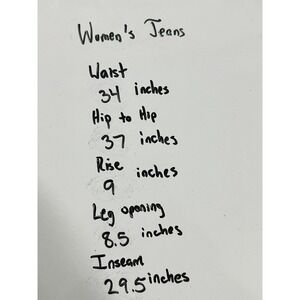 Women's Jeans
Waist
34 inches
Hip to Hip
37 inches
Rise
9 inches
Leg opening
8.5 inches
Inseam
29.5 inches